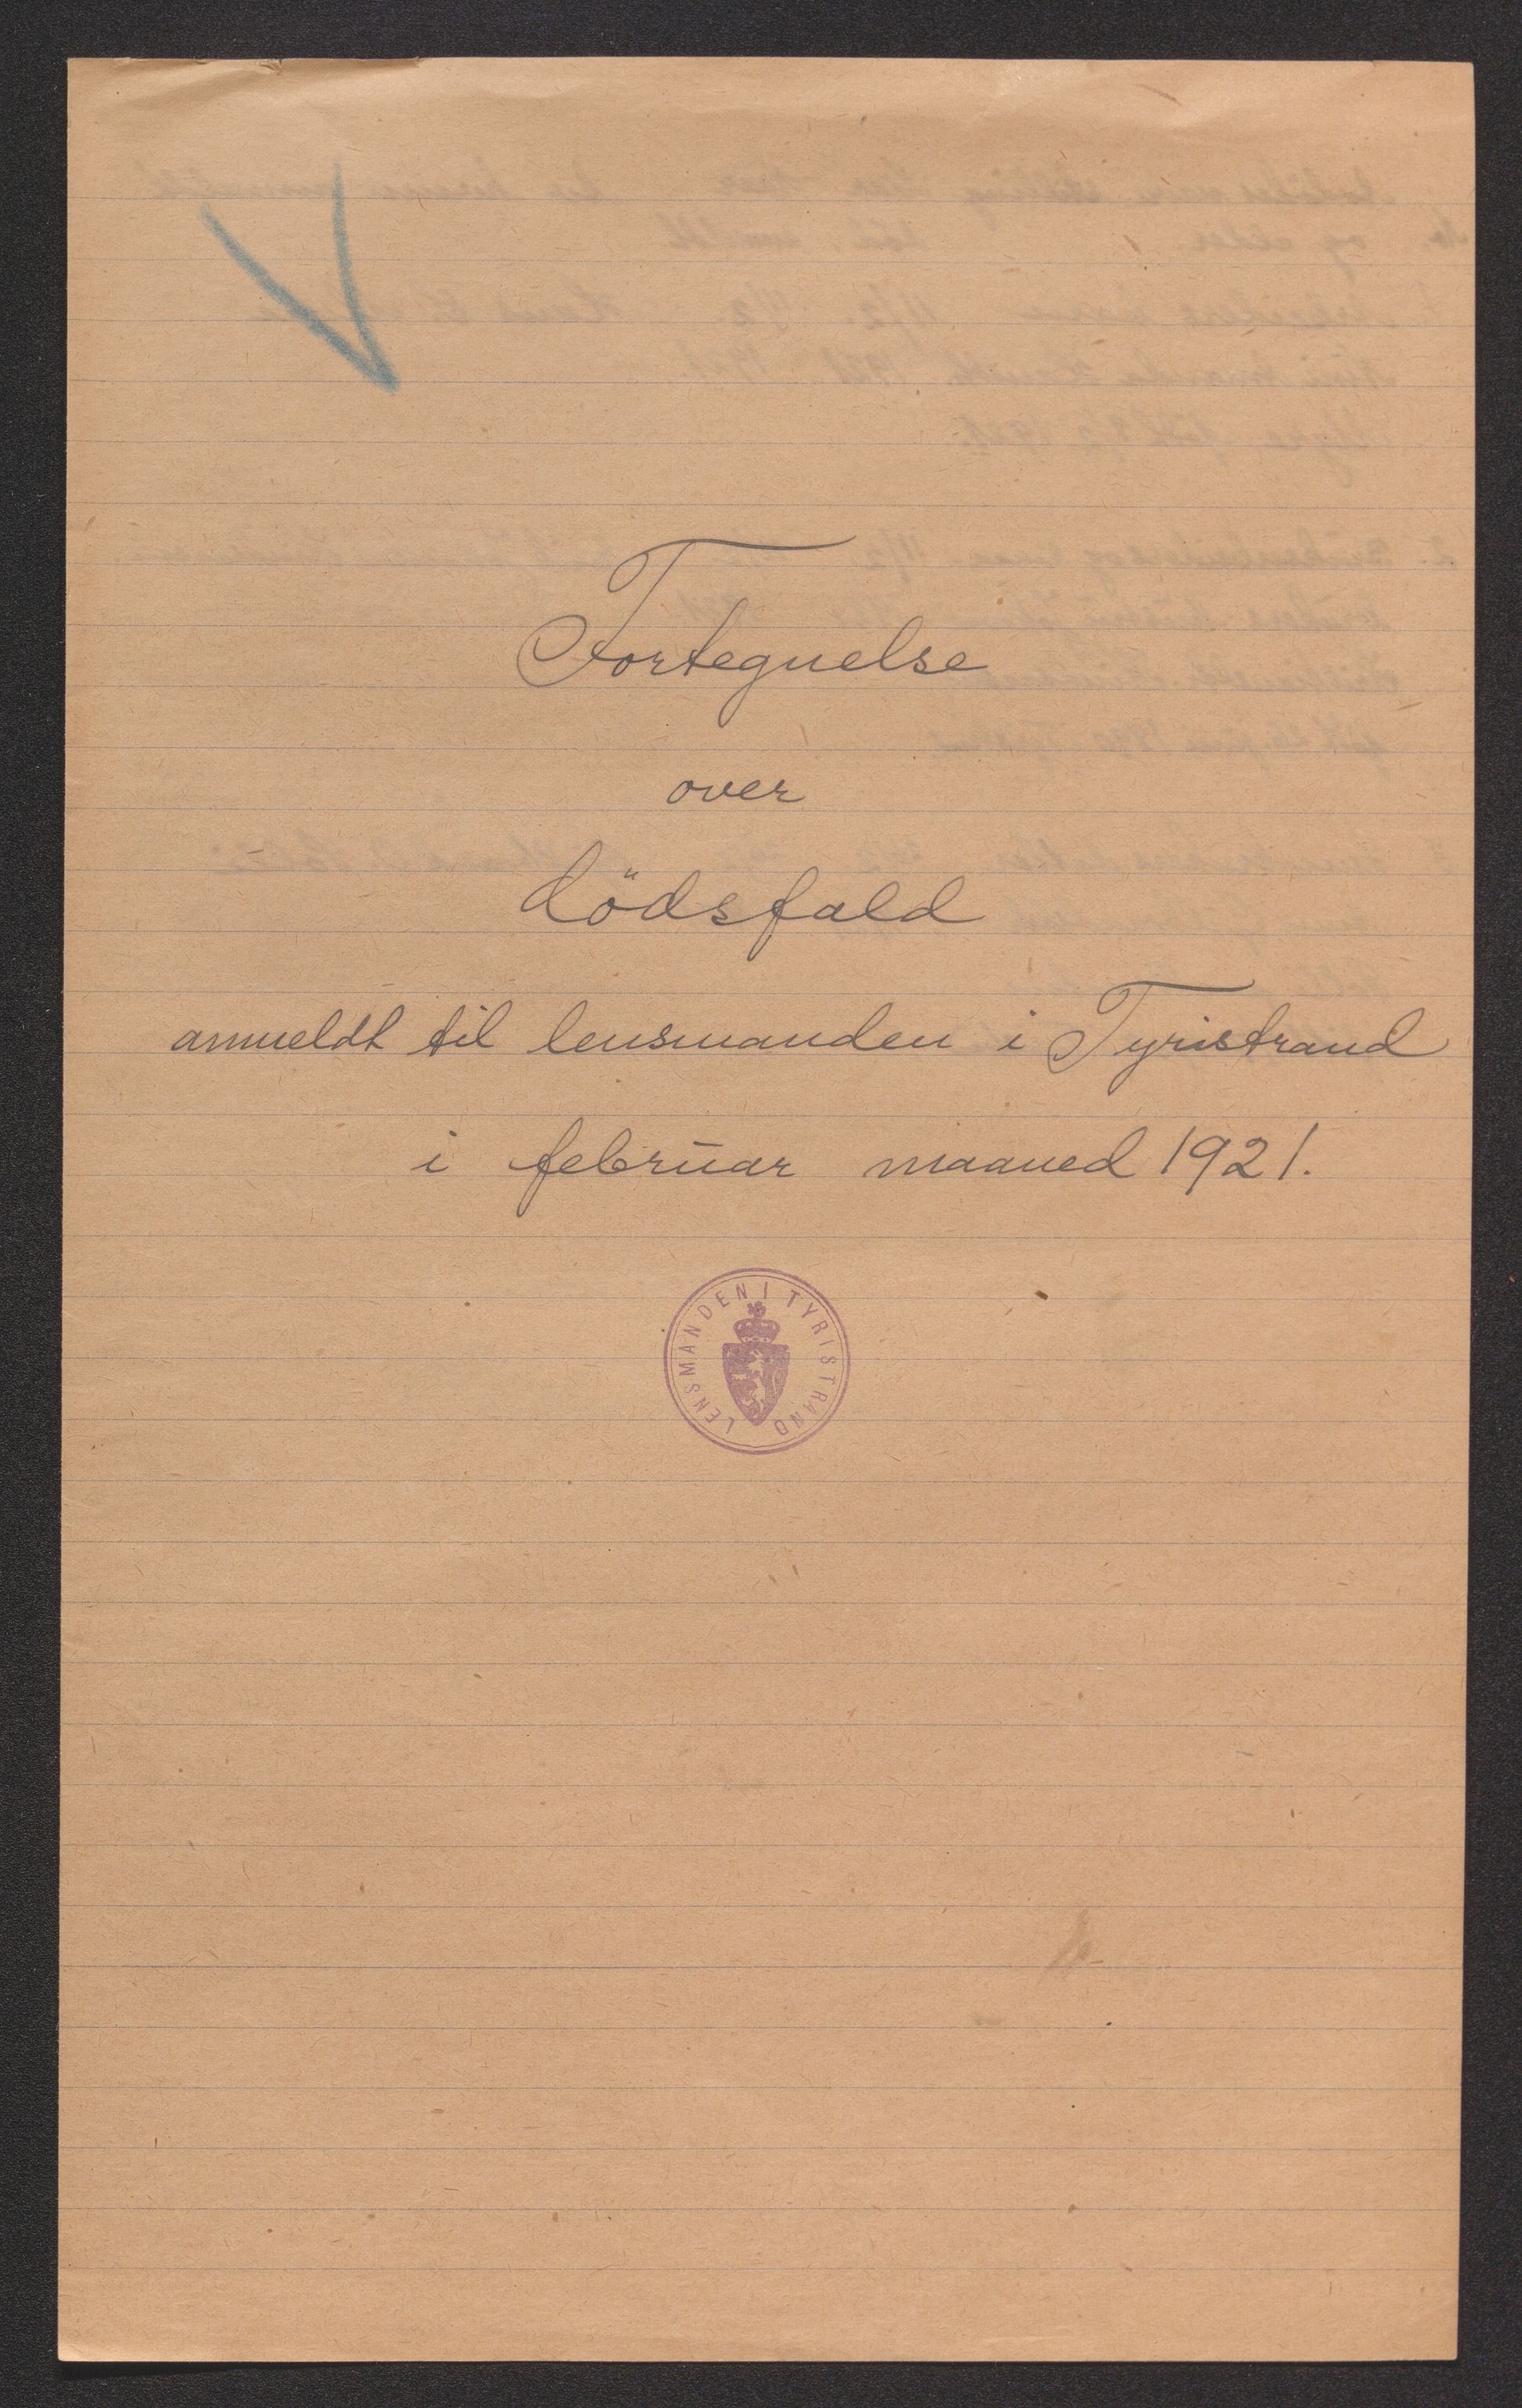 Fortegnelse
over
dödsfald
anmeldt til lensmanden i Tyristrand
i februar maaned 1921.
LENSMANDEN I TYRISTRAND